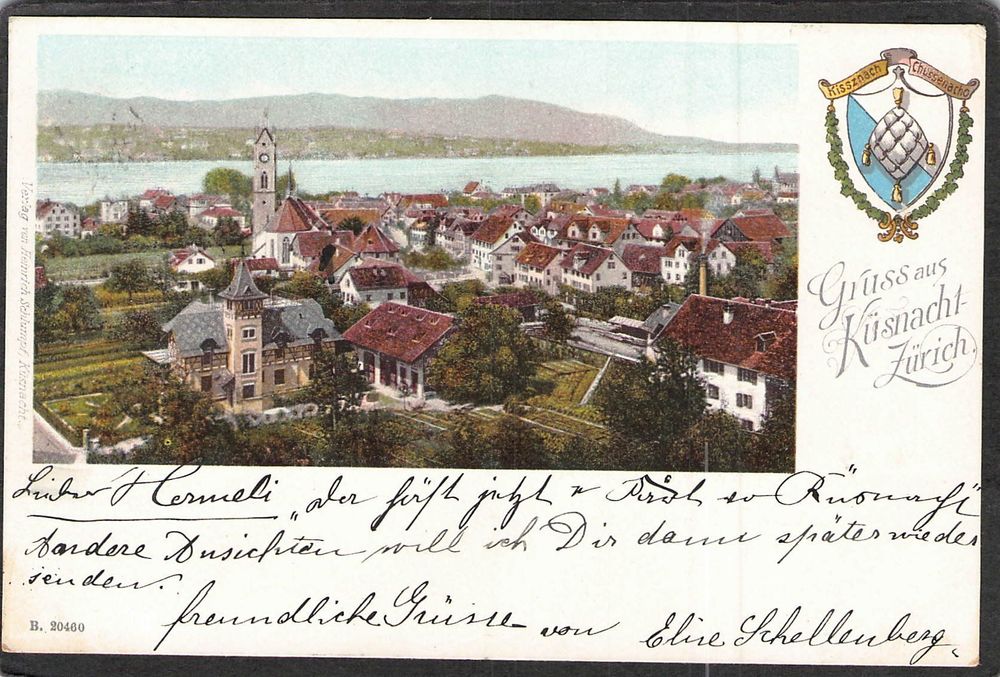 Kissznach
Chüssenacho
Gruss aus
Küsnacht-
Zürich.
Verlag von Heinrich Schlumpf, Küsnacht.
Lieber Hermeli „der jetzt so Küsnacht"
Andere Ansichten will ich Dir dann später wieder
senden.
freundliche Grüsse von Elise Schellenberg.
B. 20460